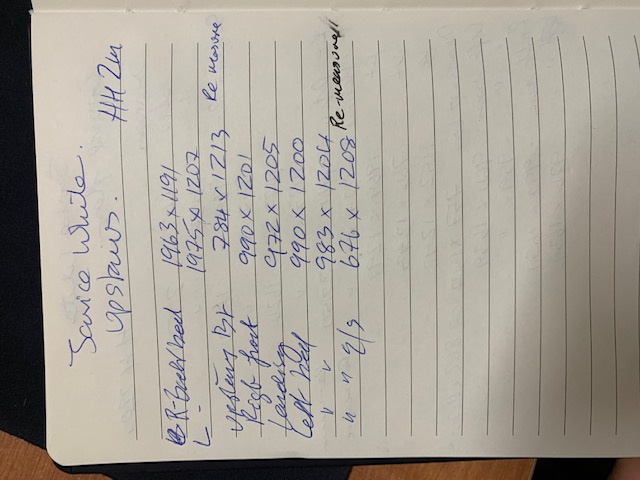 Janice White.
Upstairs. HH 2m
R-Back bed 1963 x 1191
L - 1975 x 1202
Upstairs 784 x 1213 Re measure
Right front 990 x 1201
Landing 972 x 1205
Left bed 990 x 1200
" " 983 x 1204
" " 676 x 1208 Re-measure